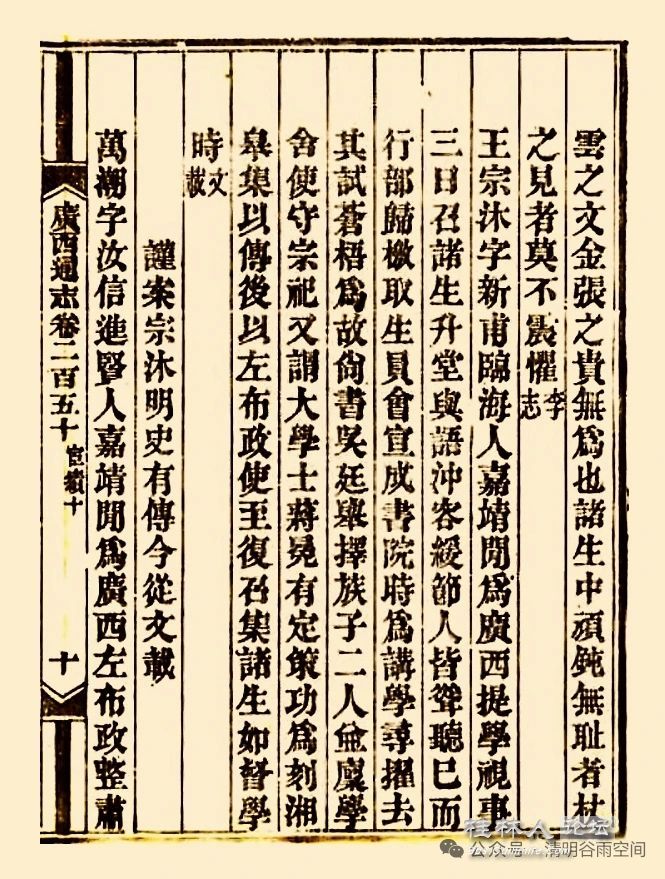 雲之文金張之貴無爲也諸生中頑鈍無耻者杖
之見者莫不震懼李志
王宗沐字新甫臨海人嘉靖閒爲廣西提學視事
三日召諸生升堂與語沖容緩節人皆聳聽已而
行部歸檄取生員會宣成書院時爲講學尋擢去
其試蒼梧爲故尚書吳廷舉擇族子二人並廩學
舍使守宗祀又謂大學士蔣冕有定策功爲刻湘
皋集以傳後以左布政使至復召集諸生如督學
時文載
謹案宗沐明史有傳今從文載
萬潮字汝信進賢人嘉靖閒爲廣西左布政整肅
廣西通志卷二百五十 宦績十
十
桂林人论坛
公众号·清明谷雨空间